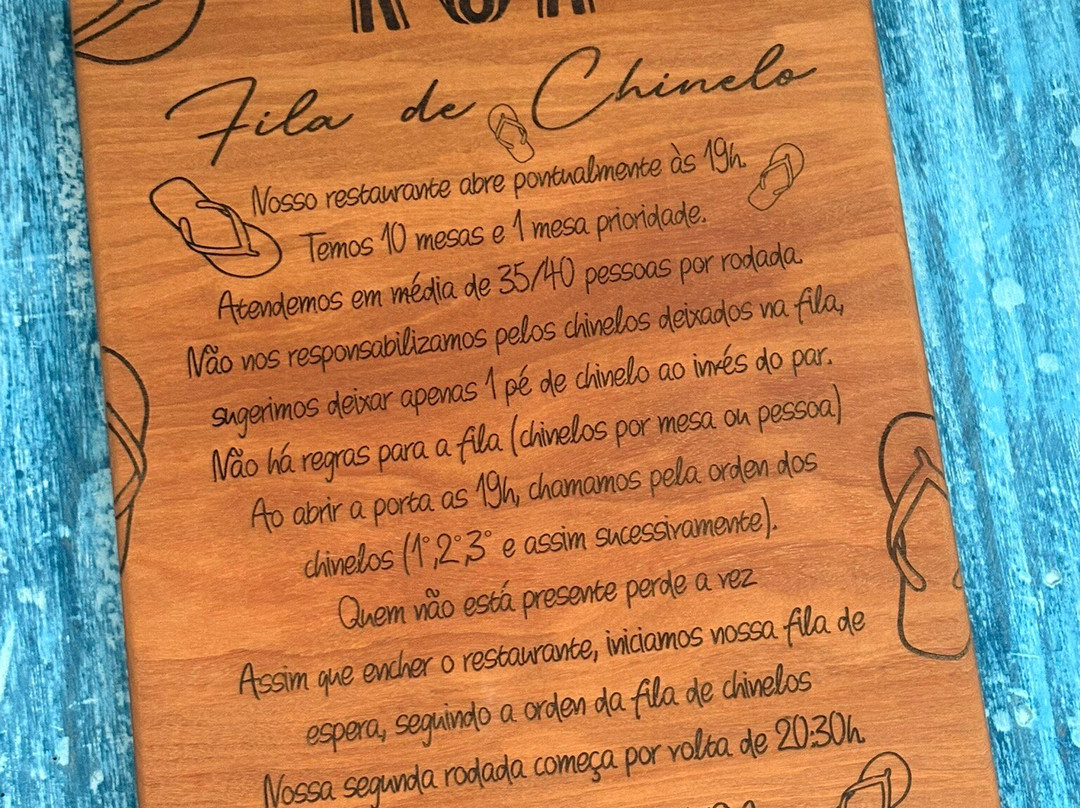 Fila de Chinelo
Nosso restaurante abre pontualmente às 19h.
Temos 10 mesas e 1 mesa prioridade.
Atendemos em média de 35/40 pessoas por rodada.
Não nos responsabilizamos pelos chinelos deixados na fila,
sugerimos deixar apenas 1 pé de chinelo ao invés do par.
Não há regras para a fila (chinelos por mesa ou pessoa)
Ao abrir a porta as 19h, chamamos pela orden dos
chinelos (1°,2°,3° e assim sucessivamente).
Quem não está presente perde a vez
Assim que encher o restaurante, iniciamos nossa fila de
espera, seguindo a orden da fila de chinelos
Nossa segunda rodada começa por volta de 20:30h.